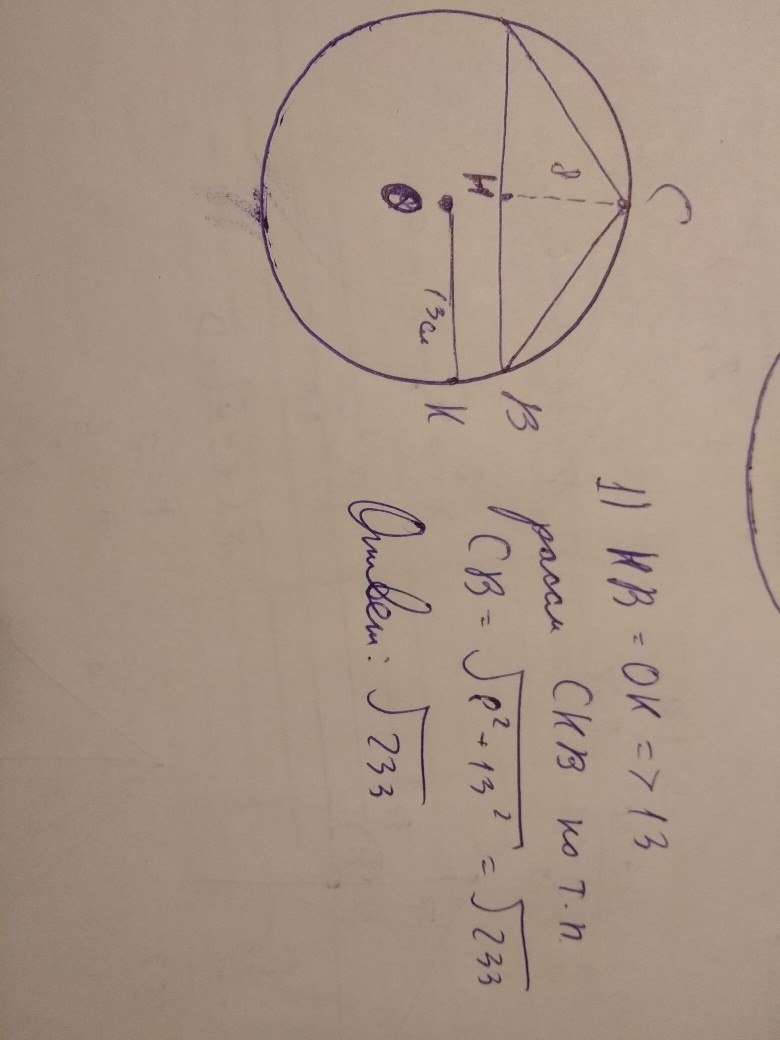 C
8
H
O
13 см
B
K
1) HB = OK => 13
рассм CHB по т. п.
CB = √8² + 13² = √233
Ответ: √233